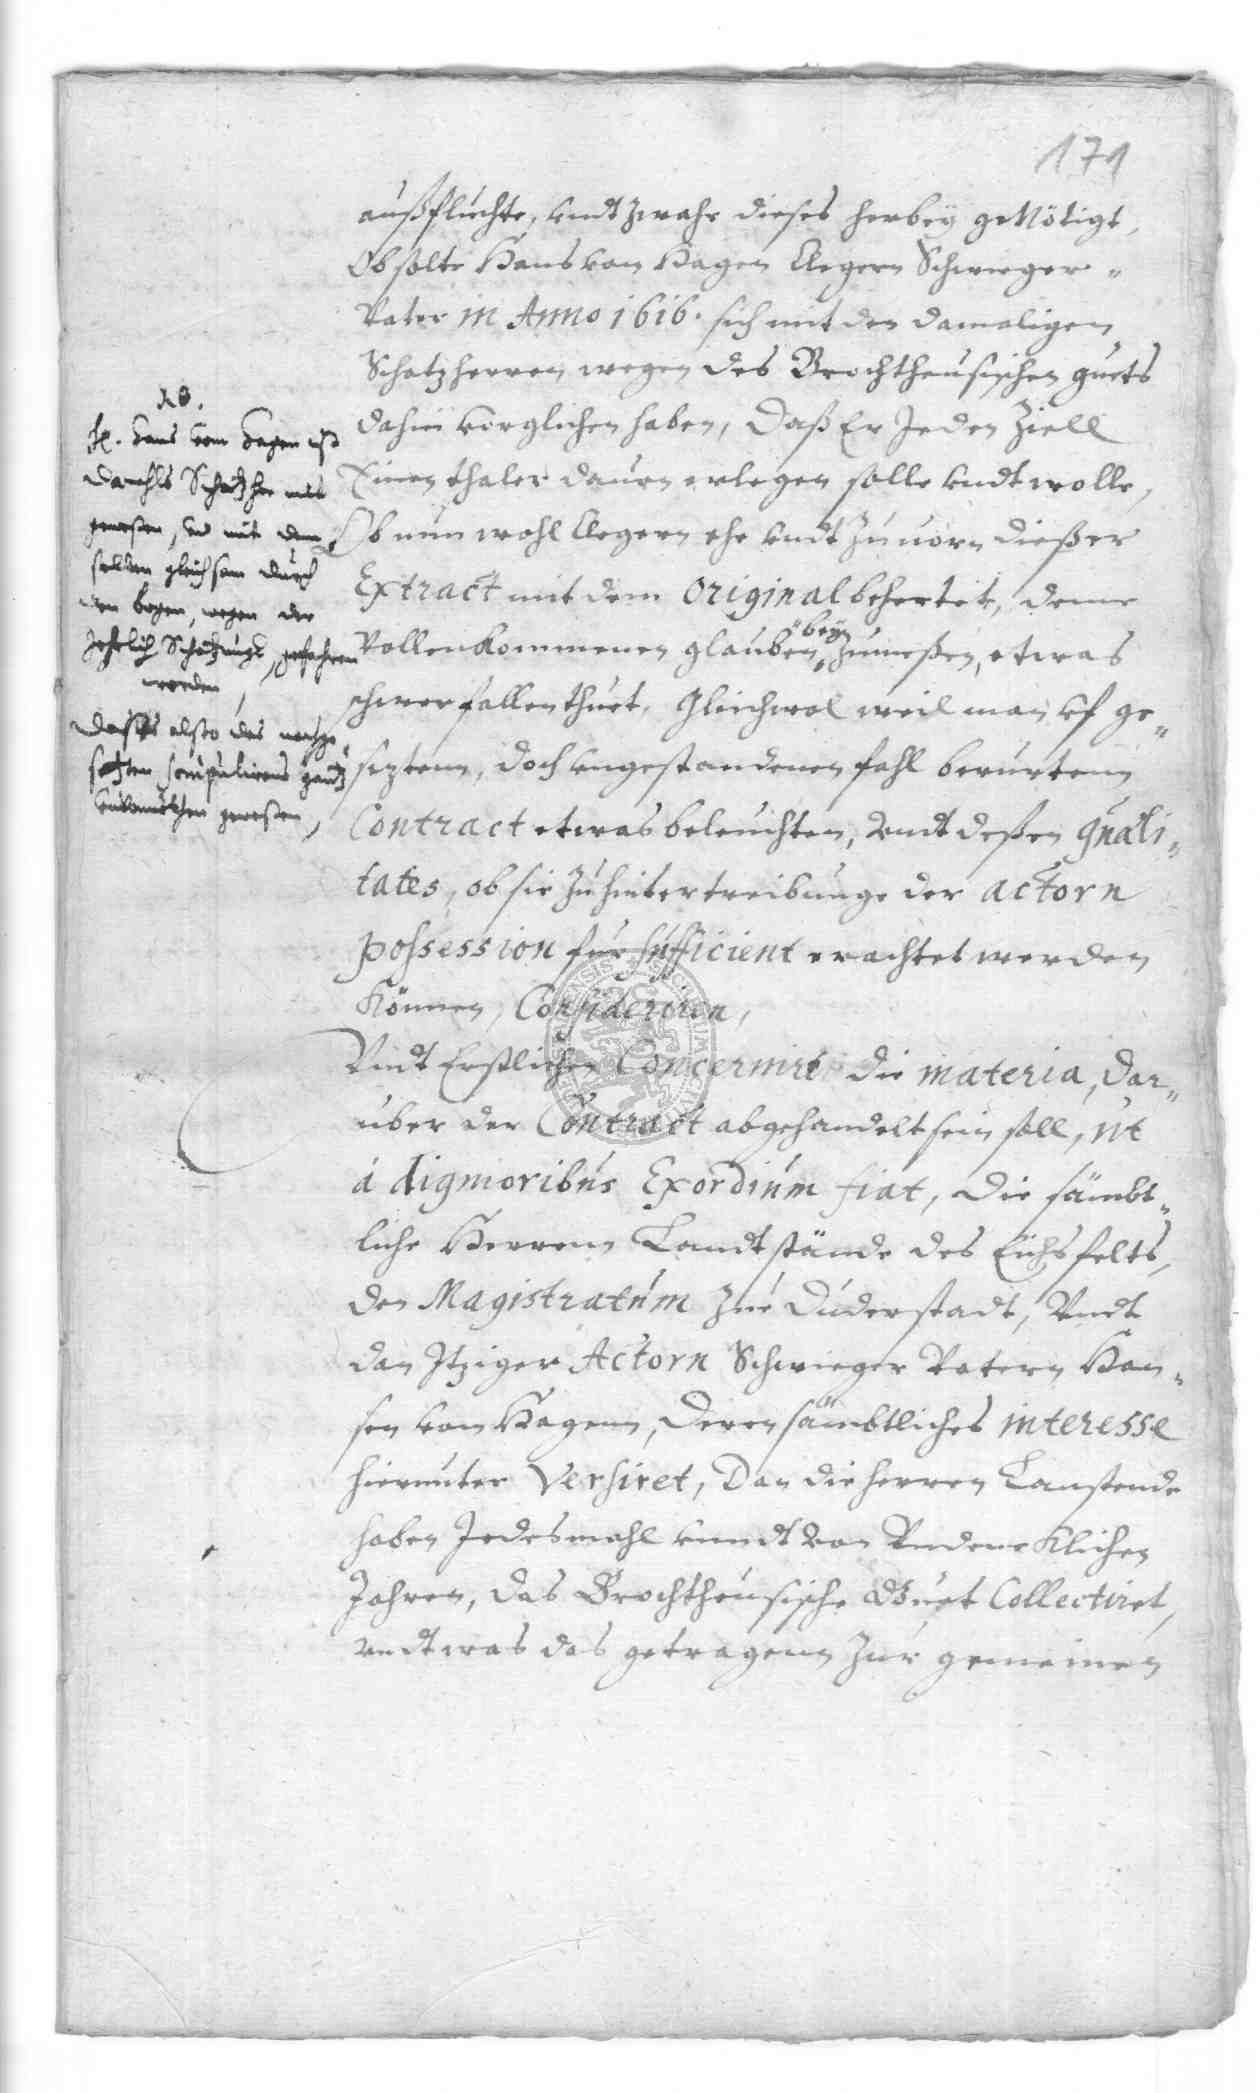 171
außflüchte, undt zwahr dieses herbey genötigt,
Ob solte Hans von Hagen Clegern Schwieger-
Vater in Anno 1616. sich mit den damaligen
Schatzherren wegen des Brochtheusischen guets
dahin verglichen haben, daß Er Jeden Ziell
Einen thaler dauon erlegen solle undt wolle,
Ob nun wohl Clegern ehe undt zuuorn dießer
Extract mit dem Original behertet, deme
Vollenkommenen glauben beyzumeßen, etwas
schwer fallen thuet. Gleichwol weil man uf ge-
setztem, doch ungestandenen fahl berürtem
Contract etwas beleuchten, Undt deßen quali-
tates, ob sie zu hintertreibunge der actorn
possession für sufficient erachtet werden
Können, Consideriren,
Undt Erstlichen Concernirt die materia, dar-
uber der Contract abgehandelt sein soll, ut
à dignioribus Exordium fiat, die sämbt-
liche Herren Landtstände des Eichsfelts,
den Magistratum zue Duderstadt, Undt
dan Itziger Actorn Schwieger Vatern Han-
sen von Hagen, deren sämbtliches interesse
hierunter Versiret, Dan die herren Lanstende
haben Jedesmahl unndt von Undencklichen
Jahren, das Brochtheusische Guet Collectiret,
undt was das getragenn zur gemeinen
NB.
Hans von Hagen ist
damahls Schatzher mit
geweßen, und mit dem-
selben gleichsam durch
den bogen, wegen der
Jehrlich Schatzungs, gefahren
worden,
dieses also des
scrupulirens gantz
geweßen,